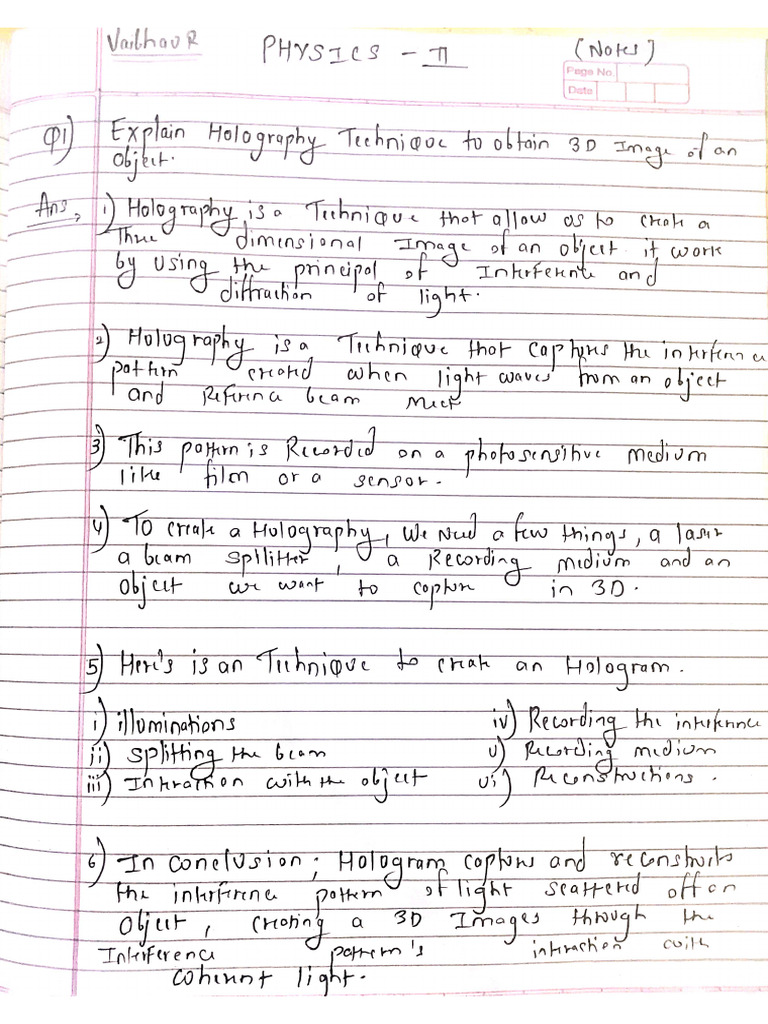 Vaibhav R PHYSICS - II (Notes)
Page No.
Date
Q1) Explain Holography Technique to obtain 3D Image of an
Object.
Ans, 1) Holography is a Technique that allow as to create a
Three dimensional Image of an object it work
by using the principal of Interference and
diffraction of light.
2) Holography is a Technique that captures the interference
pattern created when light waves from an object
and Reference beam meet
3) This pattern is Recorded on a photosensitive medium
like film or a sensor.
4) To create a Holography, We Need a few things, a laser
a beam splilitter, a Recording medium and an
object we want to capture in 3D.
5) Here's is an Technique to create an Hologram.
i) illuminations iv) Recording the interference
ii) splitting the beam v) Recording medium
iii) Interaction with the object vi) Reconstructions.
6) In conclusion; Hologram capture and reconstructs
the interference pattern of light scattered off an
object, creating a 3D Images through the
Interference pattern's interaction with
coherent light.